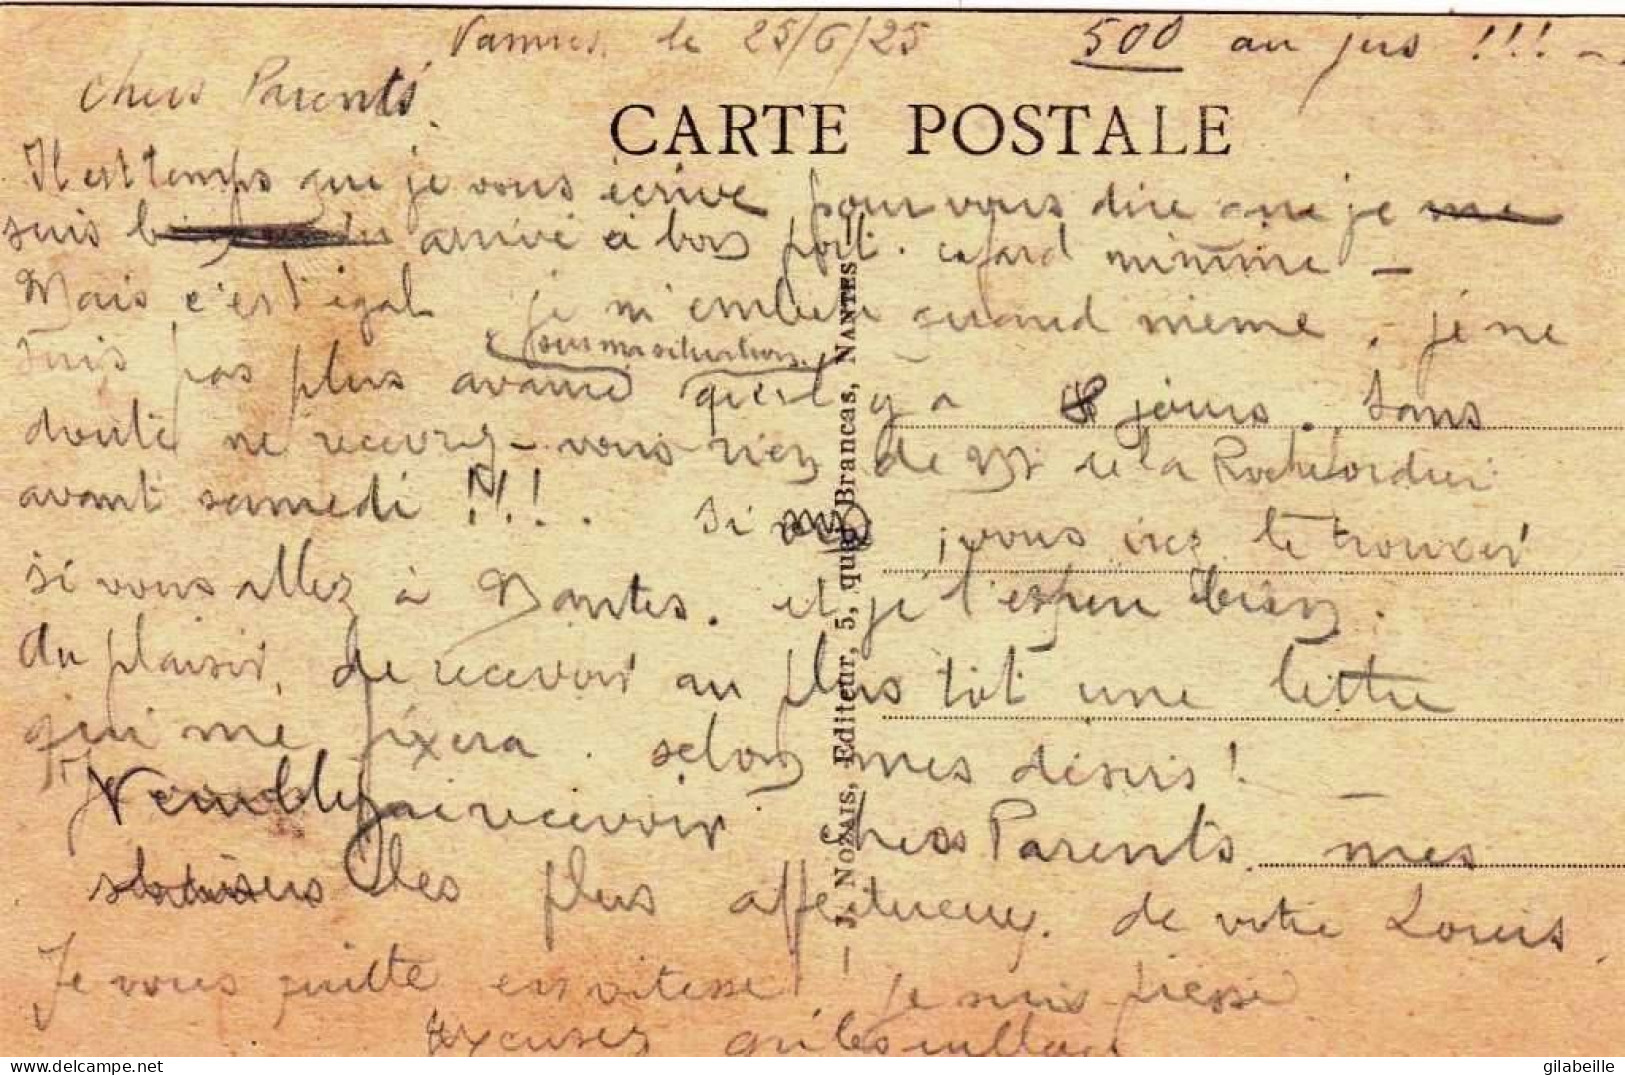 Vannes, le 25/6/25 500 au jus !!!
Chers Parents.
CARTE POSTALE
Il est temps que je vous écrive pour vous dire que je me
suis arrivé à bon port. cafard minime -
Mais c'est égal je m'embete quand même. je ne
pour ma situation.
suis pas plus avancé qu'il y a 8 jours. Sans
doute ne recevrez-vous rien de Mr de la Rochefordier
avant samedi !!!. Si vous irez le trouver
si vous allez à Nantes. et je l'espere bien.
Au plaisir, de recevoir au plus tôt une lettre
qui me fixera. selon mes désirs!
Veuillez recevoir chers Parents. mes
baisers les plus affectueux. de votre Louis.
Je vous quitte en vitesse! je suis pressé
excusez
J. NOZAIS, Editeur, 5, quai Brancas, NANTES
gilabeille